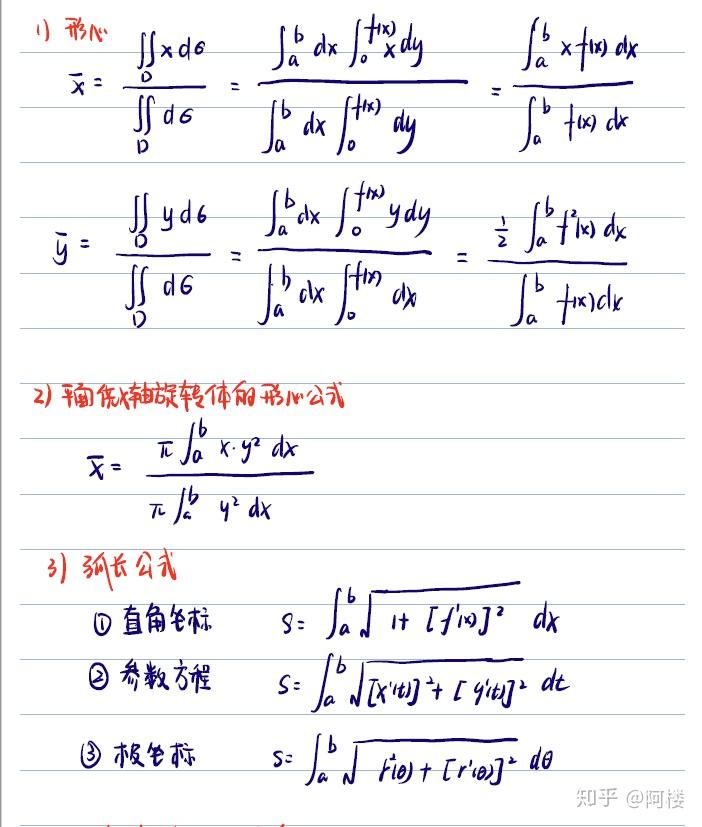 1) 形心
x̄ = ∬_D x dσ / ∬_D dσ = ∫_a^b dx ∫_0^{f(x)} x dy / ∫_a^b dx ∫_0^{f(x)} dy = ∫_a^b x f(x) dx / ∫_a^b f(x) dx
ȳ = ∬_D y dσ / ∬_D dσ = ∫_a^b dx ∫_0^{f(x)} y dy / ∫_a^b dx ∫_0^{f(x)} dx = ½ ∫_a^b f²(x) dx / ∫_a^b f(x) dx
2) 平面绕x轴旋转体的形心公式
x̄ = π ∫_a^b x·y² dx / π ∫_a^b y² dx
3) 弧长公式
① 直角坐标 S = ∫_a^b √(1 + [f'(x)]²) dx
② 参数方程 S = ∫_a^b √([x'(t)]² + [y'(t)]²) dt
③ 极坐标 S = ∫_a^b √(r²(θ) + [r'(θ)]²) dθ
知乎 @阿楼